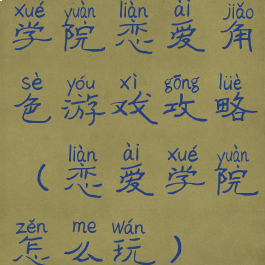 xué yuàn liàn ài jiǎo
学院恋爱角
sè yóu xì gōng lüè
色游戏攻略
liàn ài xué yuàn
(恋爱学院
zěn me wán
怎么玩)